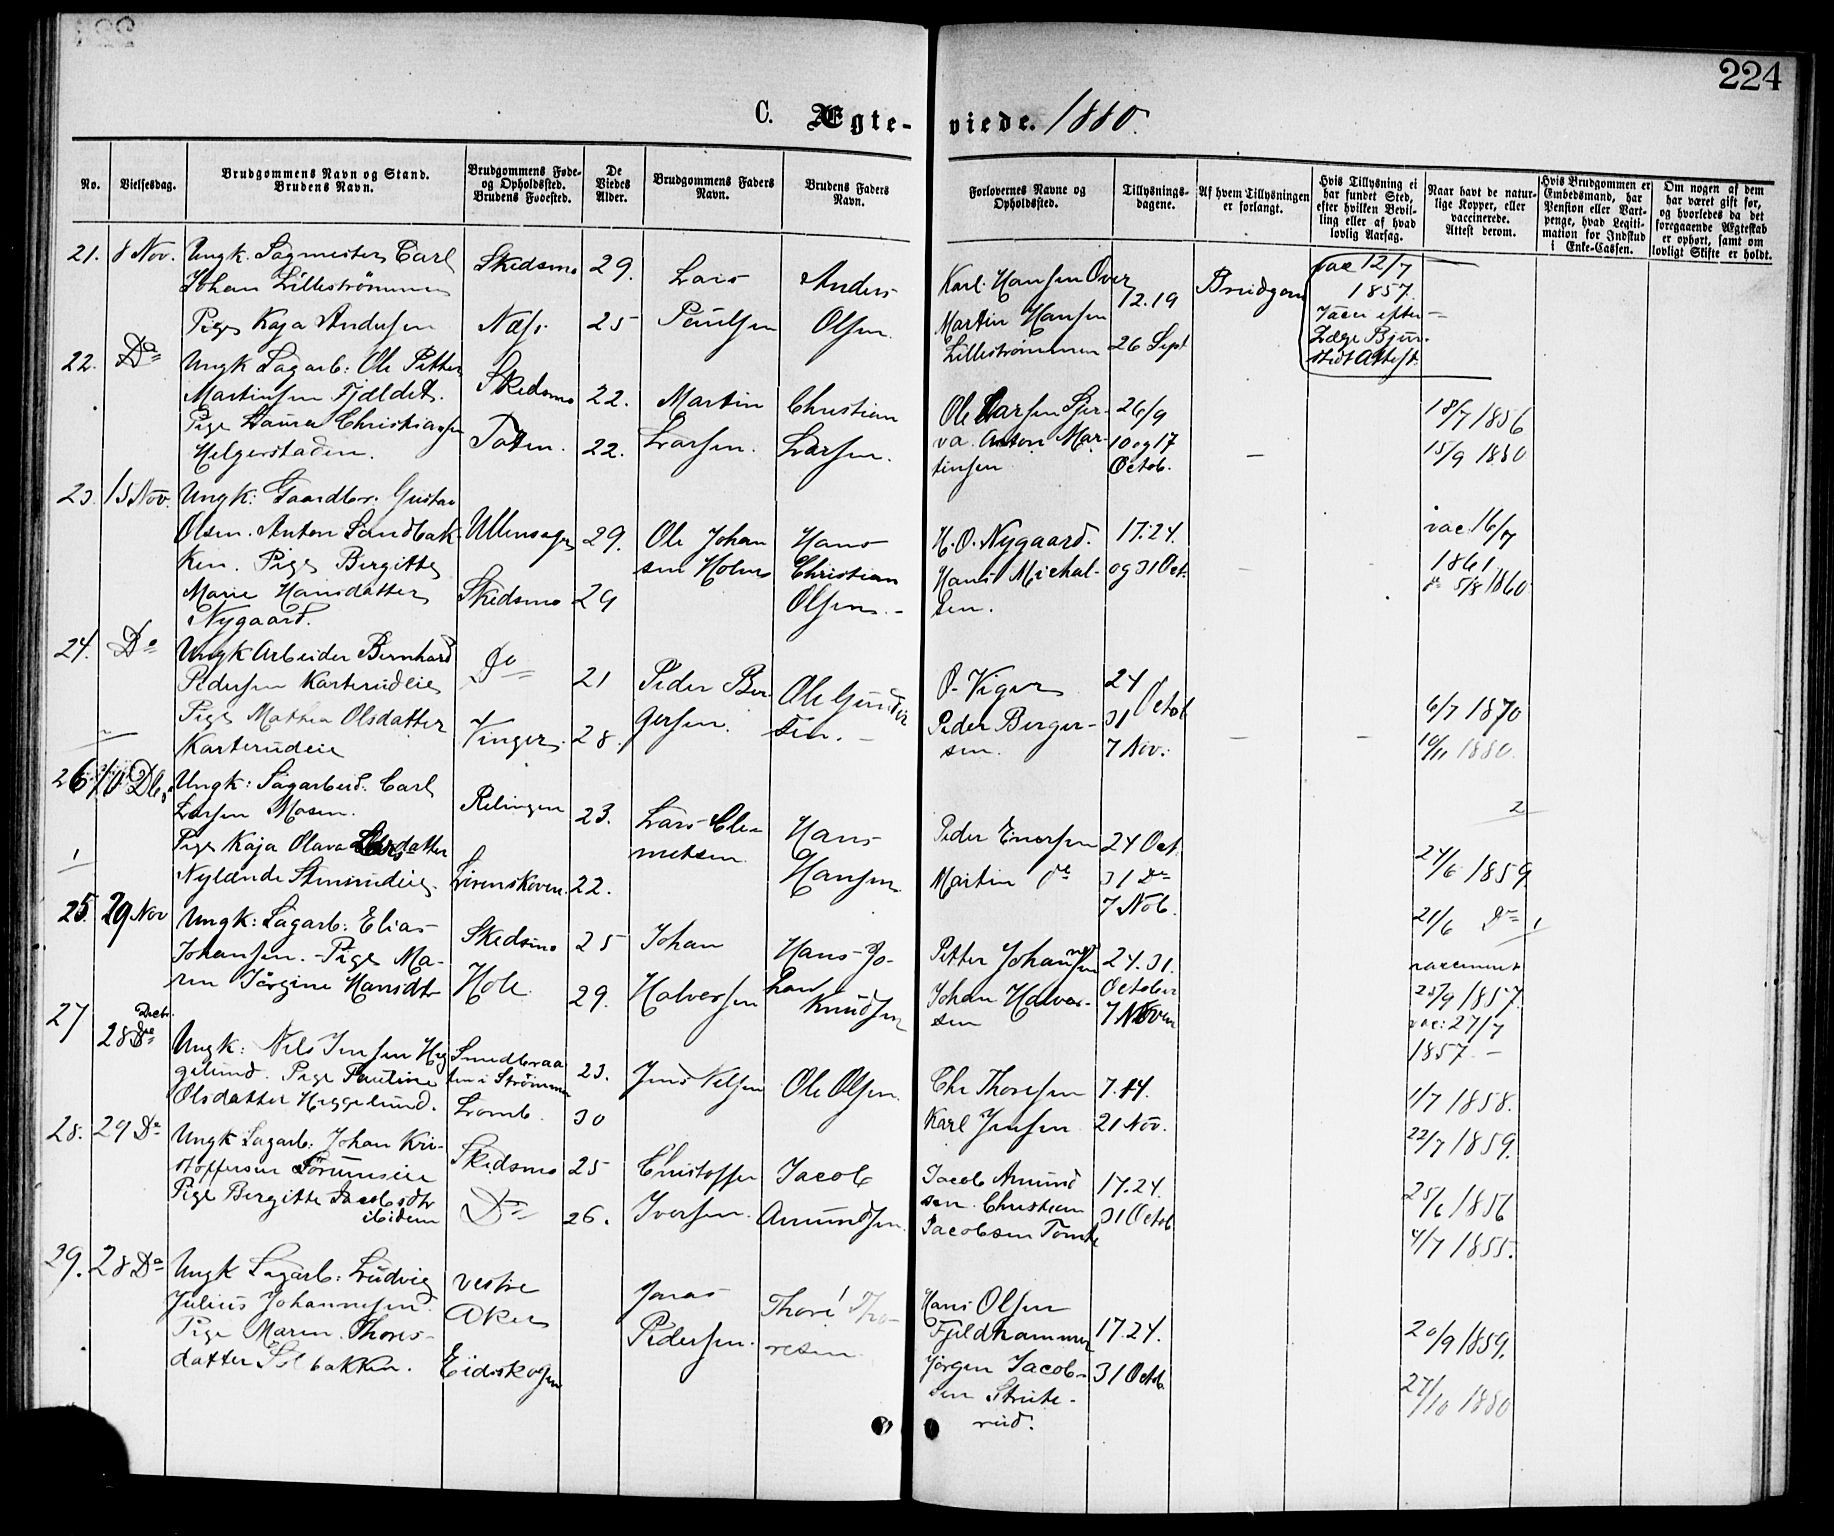 224
C. Ægte-
viede. 1880.
No.
Vielsesdag.
Brudgommens Navn og Stand.
Brudens Navn.
Brudgommens Føde-
og Opholdssted.
Brudens Fødested.
De
Viedes
Alder.
Brudgommens Faders
Navn.
Brudens Faders
Navn.
Forlovernes Navne og
Opholdssted.
Tillysnings-
dagene.
Af hvem Tillysningen
er forlangt.
Hvis Tillysning ei
har fundet Sted,
efter hvilken Bevil-
ling eller af hvad
lovlig Aarsag.
Naar havt de natur-
lige Kopper, eller
vaccinerede.
Attest derom.
Hvis Brudgommen er
Embedsmand, har
Pension eller Vart-
penge, hvad Legiti-
mation for Indskud
i Enke-Cassen.
Om nogen af dem
har været gift før,
og hvorledes da det
foregaaende Ægteskab
er ophørt, samt om
lovligt Skifte er holdt.
21. 8 Nov. Ungk. Sagmester Carl
Johan Lillestrømmen
Pige Kaja Andersen
Skedsmo 29.
Næs. 25
Lars
Paulsen
Anders
Olsen.
Karl Hansen Over
Martin Hansen
Lillestrømmen
12.19
26 Sept
Brudgom
vac 12/7
1857.
Læge Bjur-
stedt Attest.
22. Do Ungk Sagarb: Ole Petter
Martinsen Fjeldet.
Pige Laura Christiansen
Helgerstaden.
Skedsmo 22.
Toten. 22.
Martin
Larsen.
Christian
Larsen.
Ole Larsen Skjer-
va. Anton Mar-
tinsen
26/9
10 og 17
Octob.
18/7 1856
15/9 1880
23. 15 Nov. Ungk: Gaardbr. Gustav
Olsen. Anton Sandbak-
ken. Pige Bergitte
Marie Hansdatter
Nygaard.
Ullensager 29.
Skedsmo 29
Ole Johan
sen Holms
Hans
Christian
Olsen. -
H. O. Nygaard.
Hans Michal-
sen.
17.24.
og 31 Oct.
vac 16/7
1861.
do 5/8 1860
24. Do Ungk Arbeider Bernhard
Pedersen Karterudeie
Pige Mathea Olsdatter
Karterudeie
Do 21
Vinger 28.
Peder Ber
gersen.
Ole Gunder
sen. -
O. Viger
Peder Berger-
sen.
24
31 Octob
7 Nov.
6/7 1870
10/11 1880.
26 10 Dbr Ungk: Sagarbeid. Carl
Larsen Mosen.
Pige Kaja Olava datter
Nylænde Stensrudeie.
Relingen 23.
Lørenskoven. 22.
Lars Cle-
metsen
Hans
Hansen
Peder Enersen
Martin do
24 Oct.
31 Do
7 Nob.
2
24/6 1859
21/6 Do 1
25. 29 Nov Ungk: Sagarb: Elias
Johansen. - Pige Ma-
ren Jørgine Hansdtr
Skedsmo 25
Hole 29.
Johan
Halvorsen
Hans Jo-
han
Knudsen
Petter Johannsen
Johan Halvor-
sen
24.31.
October
7 Noven
vaccineret
25/9 1857.
vac: 27/7
1857 -
27 Decbr.
28 Do Ungk: Nils Jensen Heg
gelund. Pige Pauline
Olsdatter Heggelund.
Smedbraa
ten i Strømmen 23.
Lomb. 30
Jens Nilsen
Ole Olsen.
Chr Thoresen
Karl Jensen
7.14.
21 Nov.
1/7 1858.
22/7 1859.
28. 29 Do Ungk Sagarb: Johan Kri-
stoffersen Sørumseie
Pige Bergitte Jacobsdtr
ibidem
Skedsmo 25
Do 26.
Christoffer
Iversen.
Jacob
Amundsen.
Jacob Amund
sen. Christian
Jacobsen Tomte
17.24.
31 Octob
25/6 1856
4/7 1855.
29. 28 Do Ungk Sagarb: Ludvig
Julius Johannesen.
Pige Maren Thores-
datter Solbakken.
vestre
Aker
Eidskogen
Jonas
Pedersen.
Thore Tho-
resen
Hans Olsen
Fjeldhammer
Jørgen Jacob-
sen Strute-
rud.
17.24.
31 Octob.
20/9 1859.
27/10 1880